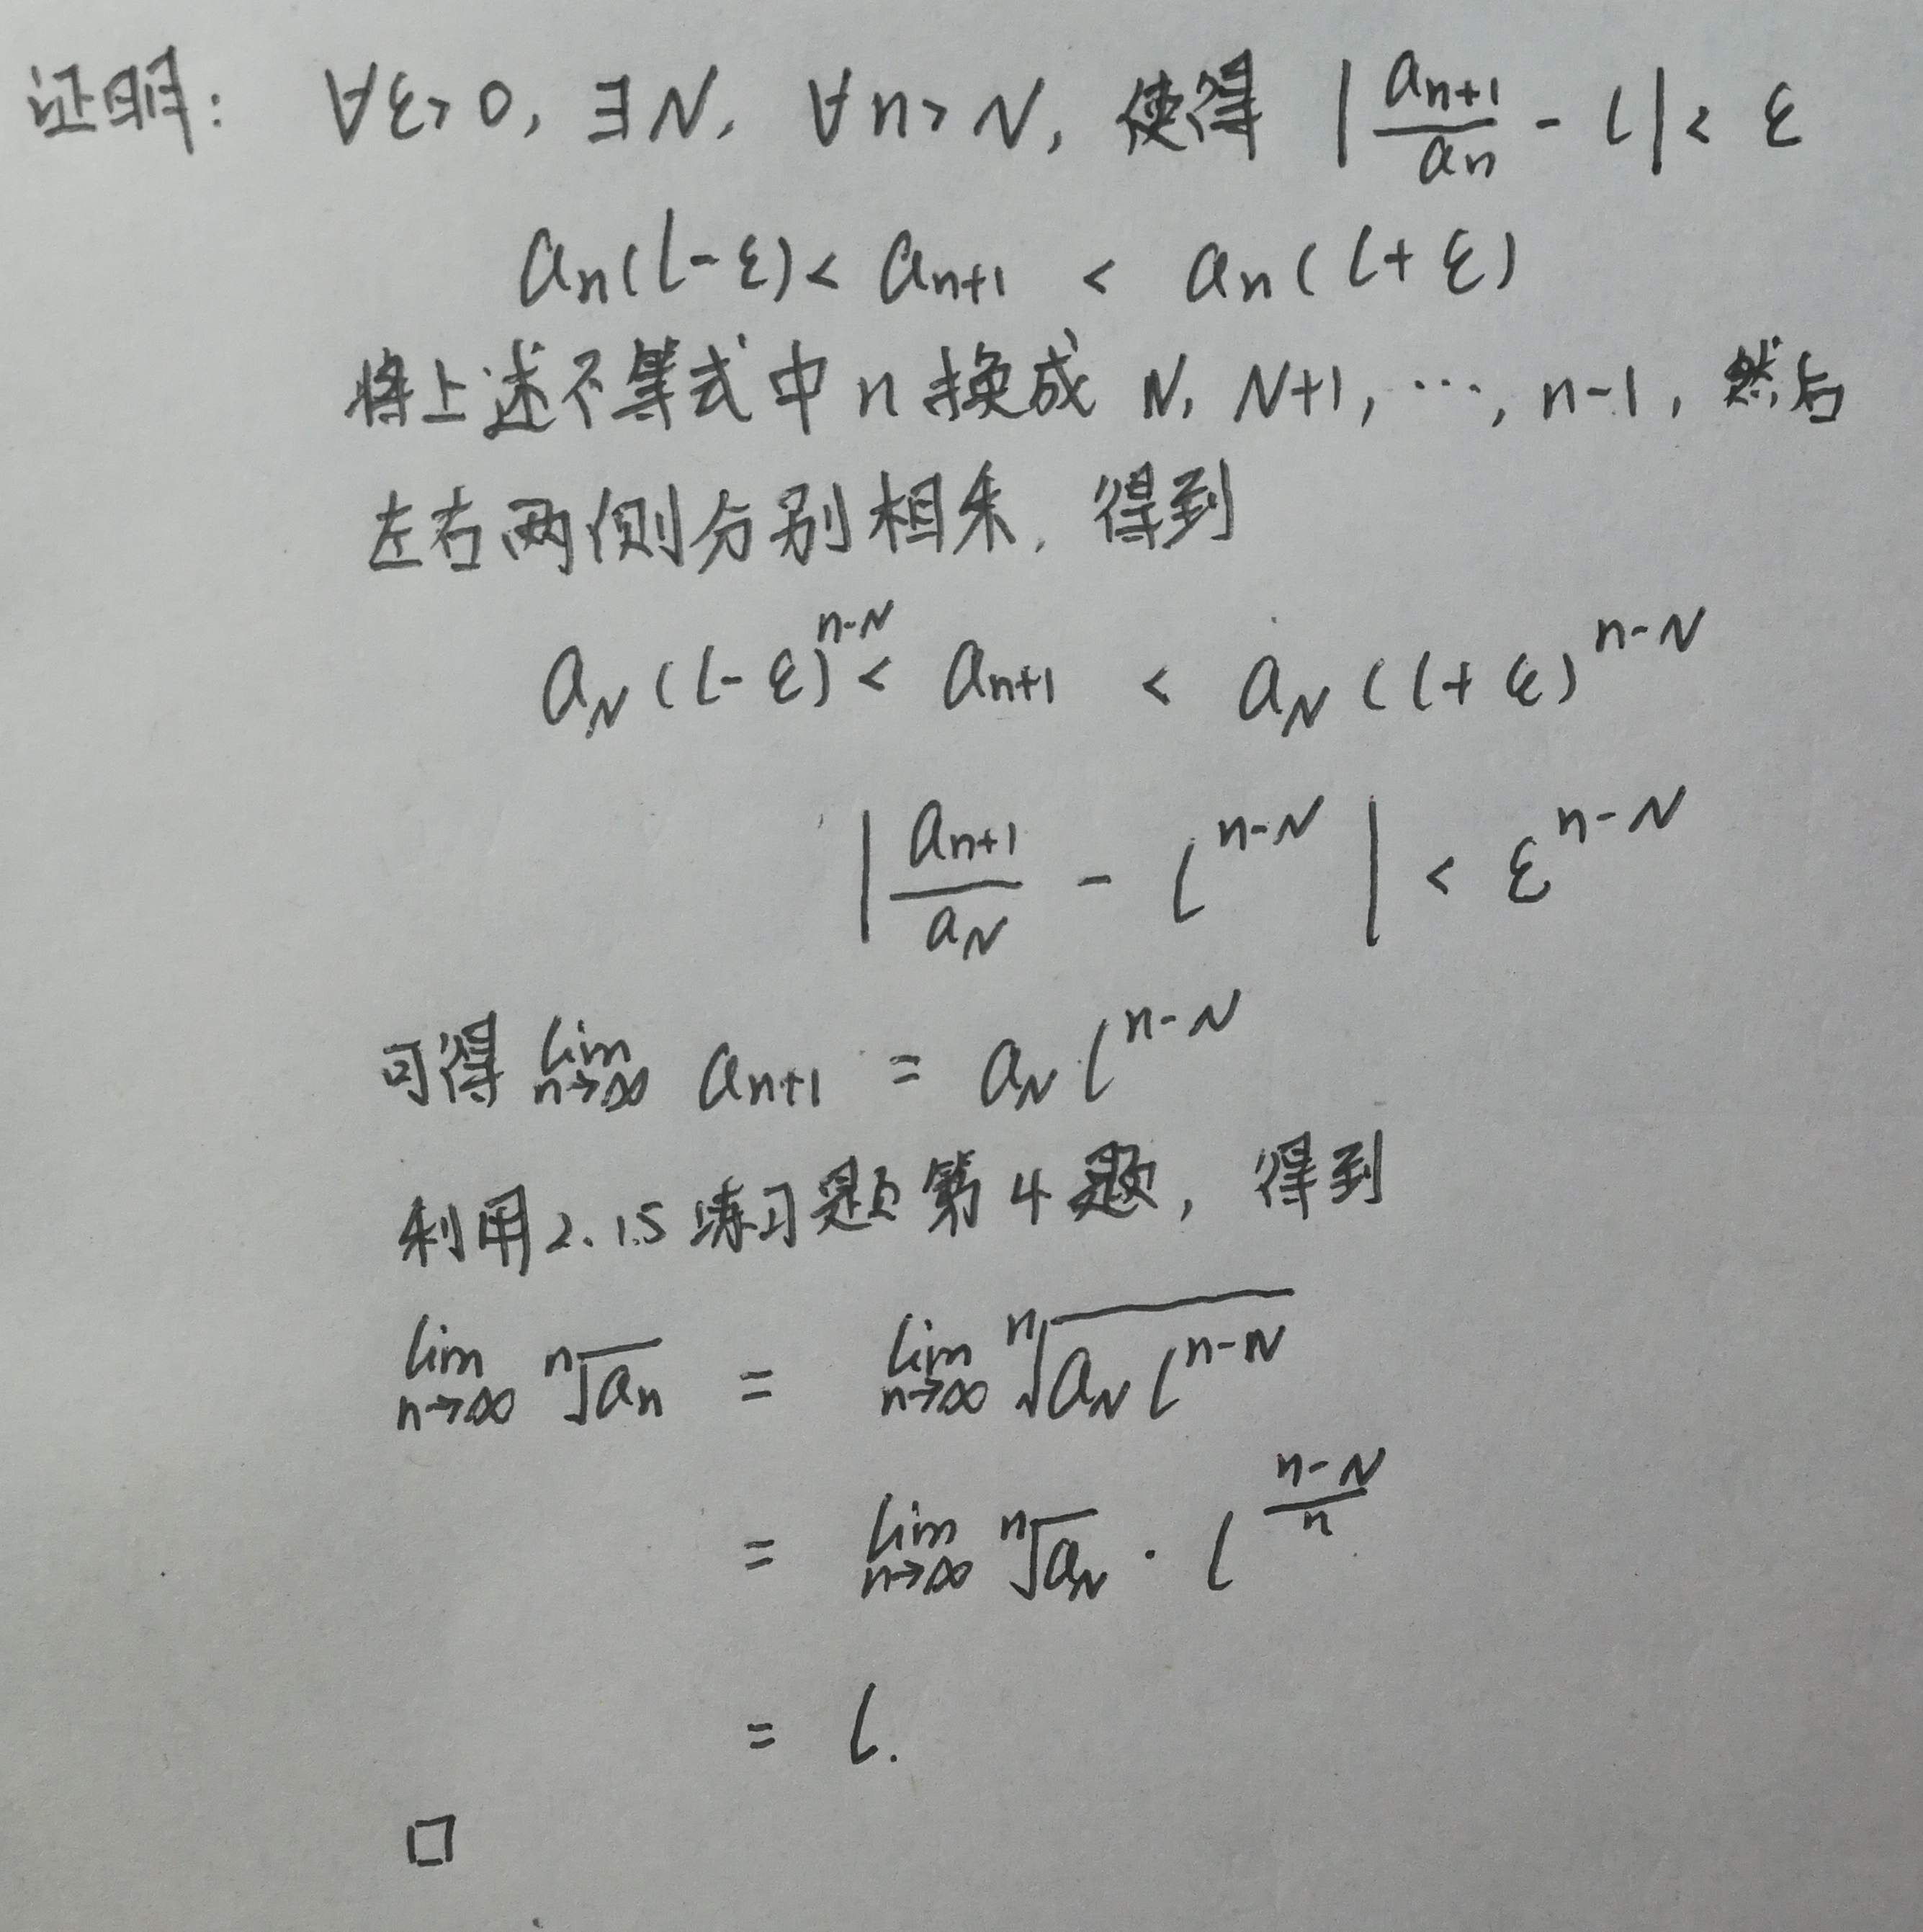 证明: ∀ε>0, ∃N, ∀n>N, 使得 |a_{n+1}/a_n - l| < ε
a_n(l-ε) < a_{n+1} < a_n(l+ε)
将上述不等式中n换成 N, N+1, …, n-1, 然后
左右两侧分别相乘, 得到
a_N(l-ε)^{n-N} < a_{n+1} < a_N(l+ε)^{n-N}
|a_{n+1}/a_N - l^{n-N}| < ε^{n-N}
可得 lim_{n→∞} a_{n+1} = a_N l^{n-N}
利用2.1.5练习题第4题, 得到
lim_{n→∞} ⁿ√a_n = lim_{n→∞} ⁿ√(a_N l^{n-N})
= lim_{n→∞} ⁿ√a_N · l^{(n-N)/n}
= l.
□